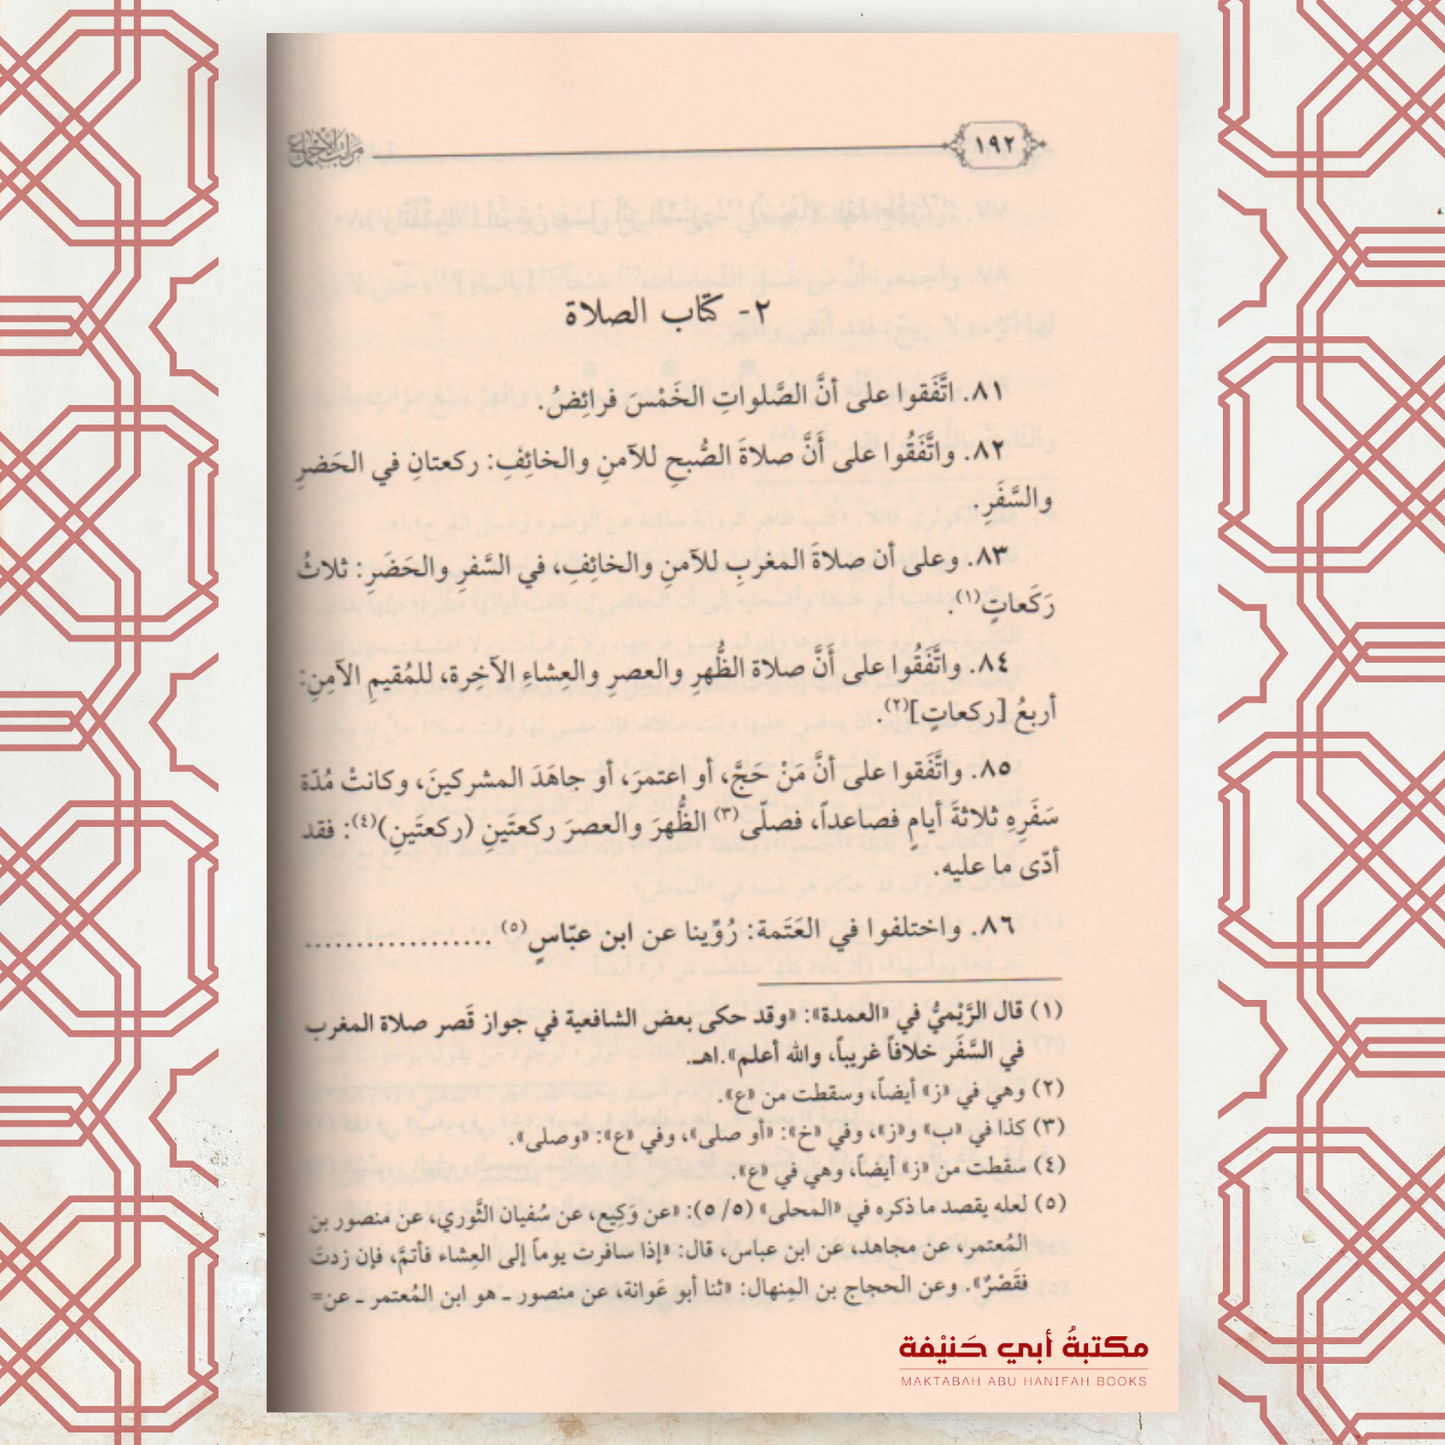 ١٩٢
مراتب الإجماع
٢- كتاب الصلاة
٨١. اتَّفَقوا على أنَّ الصَّلواتِ الخَمْسَ فرائِضُ.
٨٢. واتَّفَقُوا على أَنَّ صلاةَ الصُّبحِ للآمنِ والخائِفِ: ركعتانِ في الحَضرِ
والسَّفَرِ.
٨٣. وعلى أن صلاةَ المغربِ للآمنِ والخائِفِ، في السَّفرِ والحَضَرِ: ثلاثُ
رَكَعاتٍ(١).
٨٤. واتَّفَقُوا على أَنَّ صلاة الظُّهرِ والعصرِ والعِشاءِ الآخِرة، للمُقيمِ الآمِنِ:
أربعُ [ركعاتٍ](٢).
٨٥. واتَّفَقوا على أنَّ مَنْ حَجَّ، أو اعتمرَ، أو جاهَدَ المشركينَ، وكانتْ مُدّة
سَفَرِهِ ثلاثةَ أيامٍ فصاعداً، فصلّى(٣) الظُّهرَ والعصرَ ركعتَينِ (ركعتَينِ)(٤): فقد
أدّى ما عليه.
٨٦. واختلفوا في العَتَمة: رُوِّينا عن ابن عبّاسٍ(٥) ..................
(١) قال الرَّيْميُّ في «العمدة»: «وقد حكى بعض الشافعية في جواز قَصر صلاة المغرب
في السَّفَر خلافاً غريباً، والله أعلم».اهـ.
(٢) وهي في «ز» أيضاً، وسقطت من «ع».
(٣) كذا في «ب» و«ز»، وفي «خ»: «أو صلى»، وفي «ع»: «وصلى».
(٤) سقطت من «ز» أيضاً، وهي في «ع».
(٥) لعله يقصد ما ذكره في «المحلى» (٥/ ٥): «عن وَكِيع، عن سُفيان الثَّوري، عن منصور بن
المُعتمر، عن مجاهد، عن ابن عباس، قال: «إذا سافرت يوماً إلى العِشاء فأتمَّ، فإن زدتَ
فقَصْرٌ». وعن الحجاج بن المِنهال: «ثنا أبو عَوانة، عن منصور ـ هو ابن المُعتمر ـ عن=
مكتبةُ أبي حَنيْفة
MAKTABAH ABU HANIFAH BOOKS